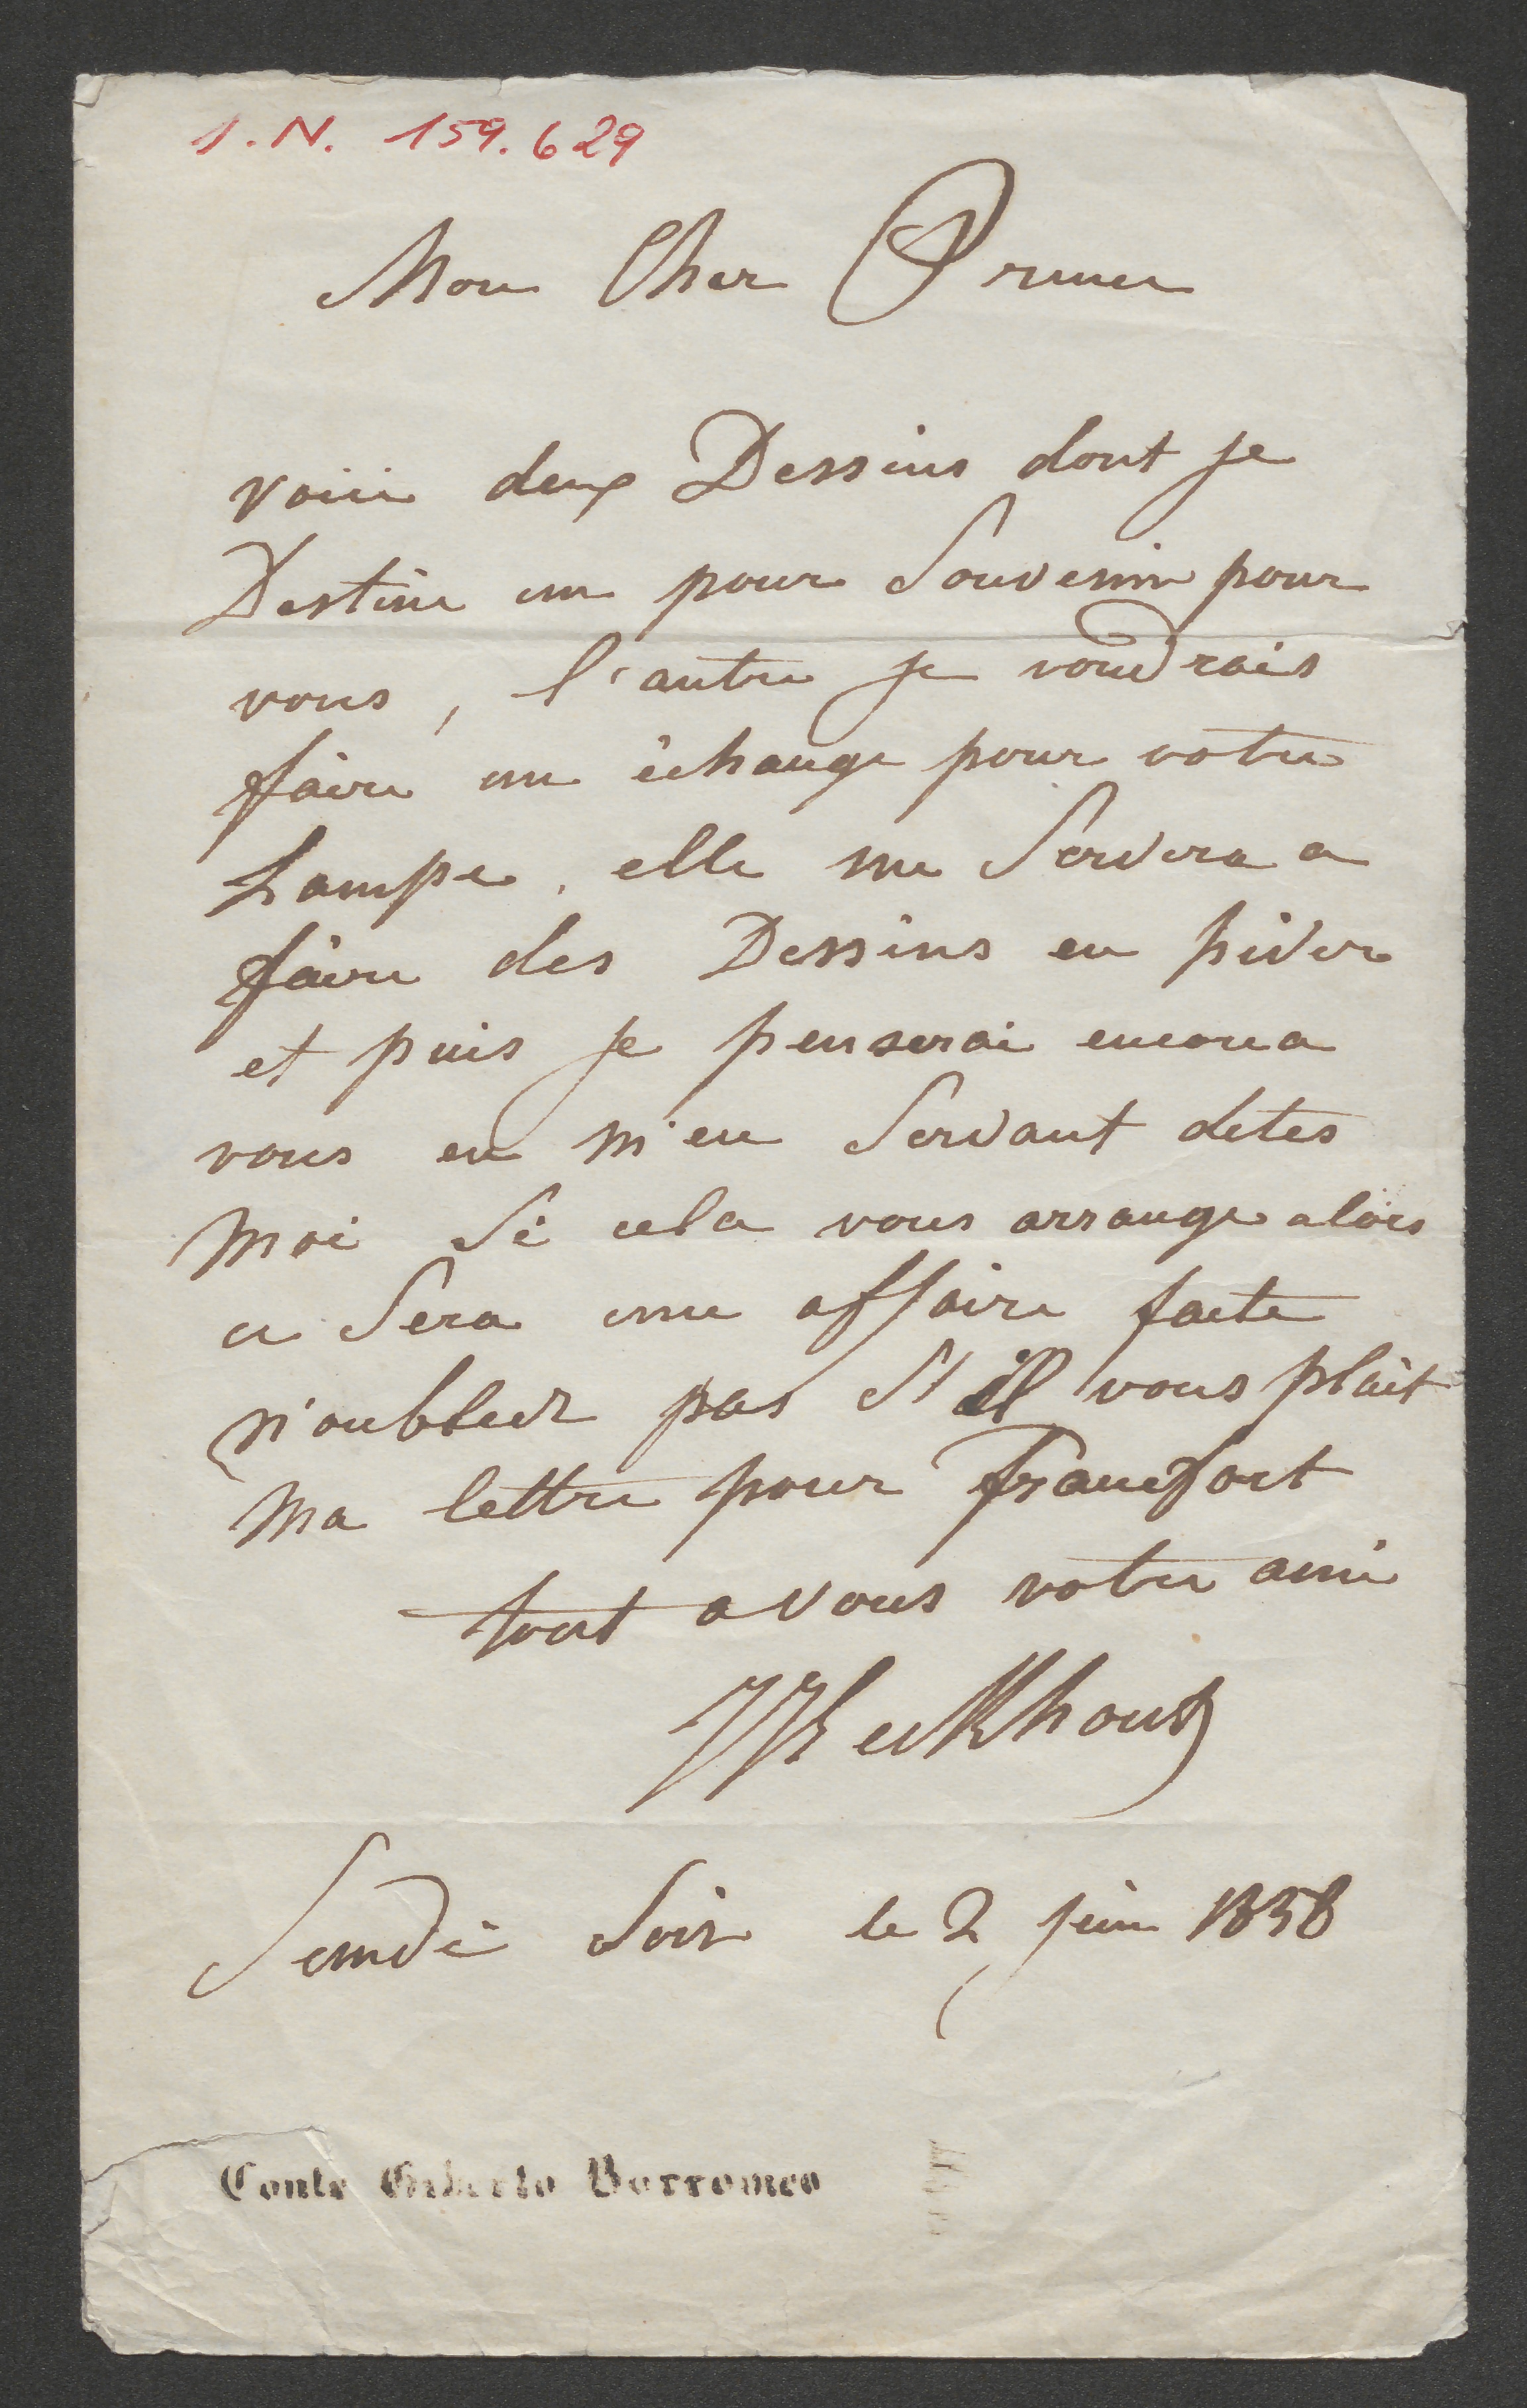 I.N. 159.629
Mon Cher Pruner
voici deux Dessins dont je
Destine un pour Souvenir pour
vous, l'autre je voudrais
faire un échange pour votre
Lampe. elle me Servira a
faire des Dessins en hiver
et puis je penserai encore a
vous en m'en Servant dites
moi Si cela vous arrange alors
ce Sera une affaire faite
n'oubliez pas S'il vous plait
ma lettre pour Francfort
tout a vous votre ami
JJEeckhout
le 2 juin 1858
Soir
Conte Giberto Borromeo